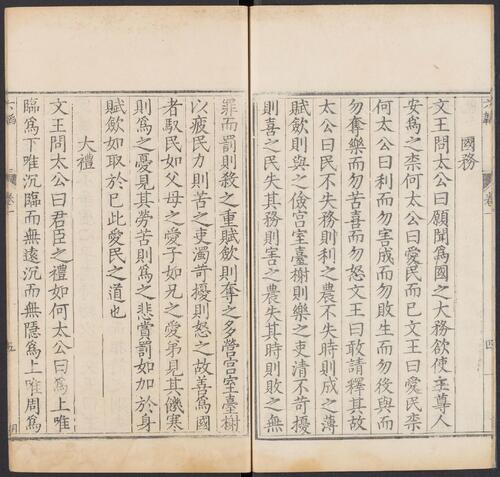 六韜 卷一 四
國務
文王問太公曰願聞爲國之大務欲使主尊人
安爲之柰何太公曰愛民而已文王曰愛民柰
何太公曰利而勿害成而勿敗生而勿殺與而
勿奪樂而勿苦喜而勿怒文王曰敢請釋其故
太公曰民不失務則利之農不失時則成之薄
賦歛則與之儉宮室臺榭則樂之吏清不苛擾
則喜之民失其務則害之農失其時則敗之無
罪而罰則殺之重賦歛則奪之多營宮室臺榭
以疲民力則苦之吏濁苛擾則怒之故善爲國
者馭民如父母之愛子如兄之愛弟見其饑寒
則爲之憂見其勞苦則爲之悲賞罰如加於身
賦歛如取於已此愛民之道也
大禮
文王問太公曰君臣之禮如何太公曰爲上唯
臨爲下唯沉臨而無遠沉而無隱爲上唯周爲
六韜 卷一 五